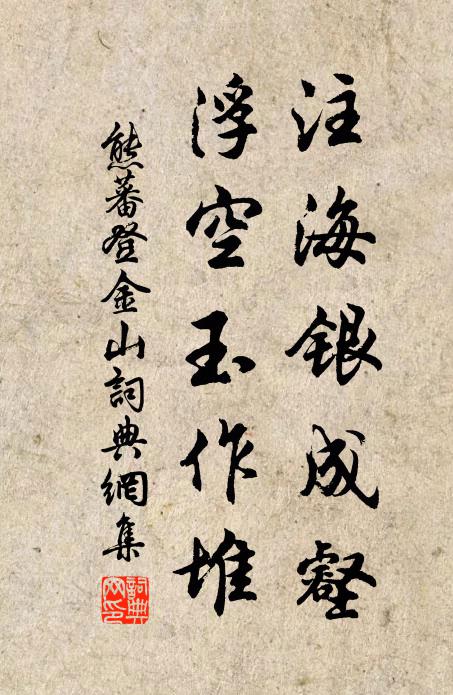 注海銀成壑
浮空玉作堆
熊蕃登金山詞典網集
詞典网印